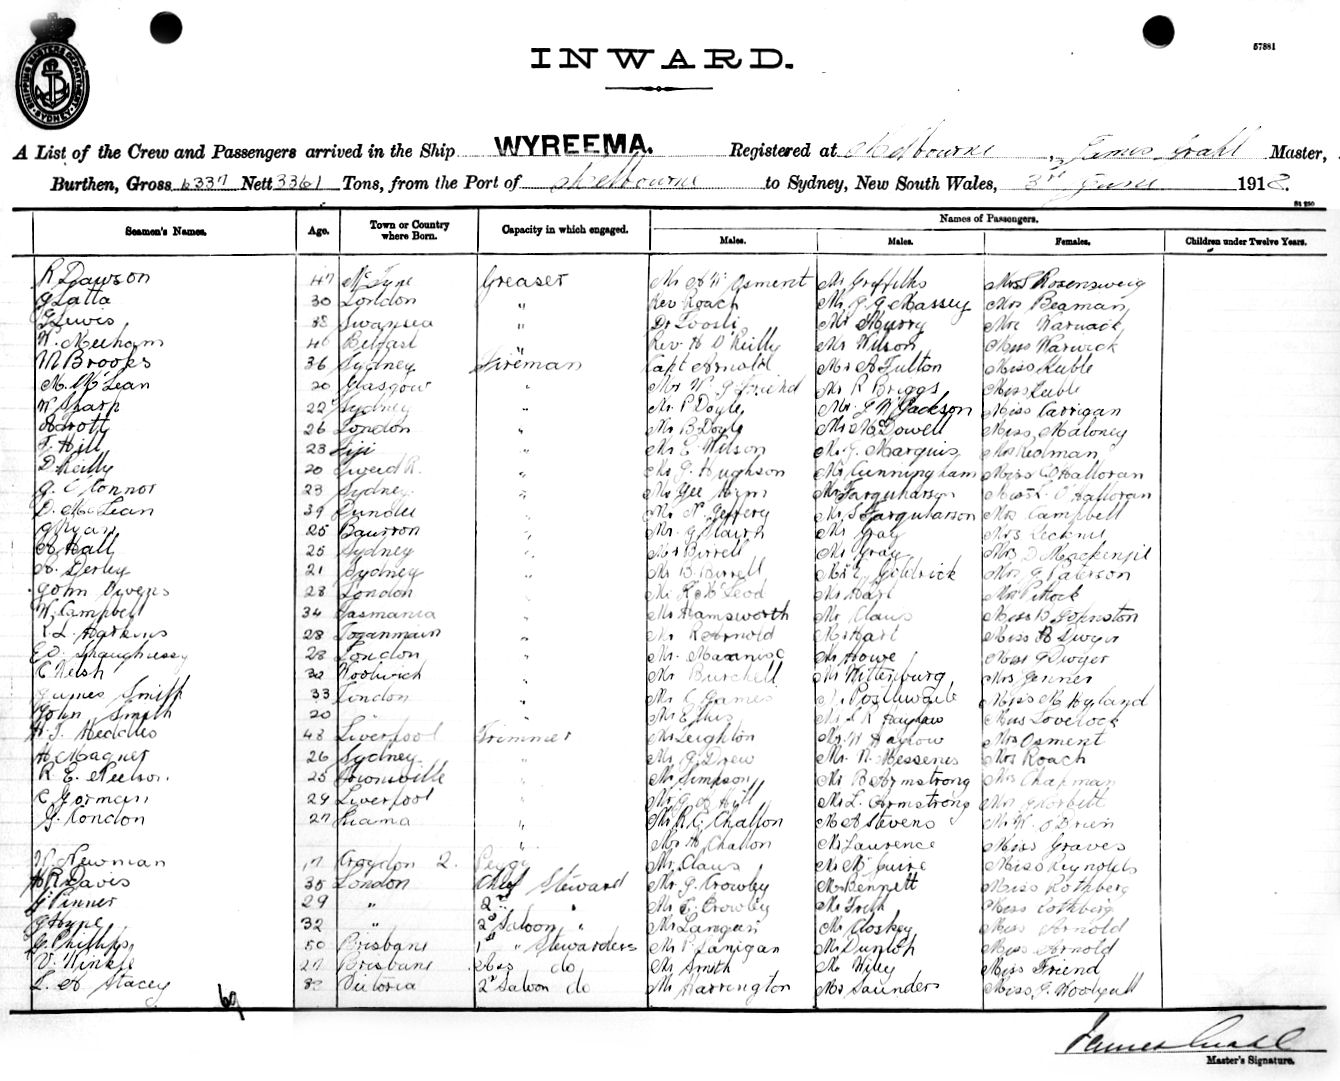 SHIPPING MASTERS DEPARTMENT SYDNEY
57881
INWARD.
A List of the Crew and Passengers arrived in the Ship WYREEMA. Registered at Melbourne, James Grahl Master,
Burthen, Gross 6337 Nett 3361 Tons, from the Port of Melbourne to Sydney, New South Wales, 3rd June 1918.
Seamen's Names. Age. Town or Country where Born. Capacity in which engaged. Names of Passengers.
Males. Males. Females. Children under Twelve Years.
R Dawson 47 N. Tyne Greaser Mr A W Osment Mr Griffiths Mrs S Rosensweig
G Latta 30 London " Rev Roach Mr G G Massey Mrs Beaman
G Lewis 38 Swansea " Dr Mr Murry Mrs Warwack
W. Meeham Belfast " Rev. H O'Reilly Mr Wilson Miss Warwick
M Brooks 36 Sydney Fireman Capt Arnold Mr A Fulton Miss Keeble
M. McLean 20 Glasgow " Mr W. G Friend Mr R Briggs Miss Keeble
W Sharp 22 Sydney " Mr P Doyle Mr. G W Jackson Miss Carrigan
26 London " Mr B Doyle Mr McDowell Miss Maloney
F. Hill 23 Fiji " Mr E Wilson Mr G. Marquis Mrs Redman
D Reilly 20 Tweed R. " Mr G. Hughson Mr Cunningham Miss O'Halloran
G. O'Connor 23 Sydney " Mr Gee Mr Farquharson Miss L. O'Halloran
D. McLean 39 Dundee " Mr N. Jeffery Mr S Farquharson Mrs Campbell
G Ryan 25 " Mr G. Mr Gray Mrs
A Hall 25 Sydney " Mr Birrell Mr Gray Mrs D Mackenzie
A. Derley 21 Sydney " Mr B Birrell Mr Goldrick Mrs G Paterson
John Owens 28 London " Mr K McLeod Mr Hart Mrs Pittock
W. Campbell 34 Tasmania " Mr Hamsworth Mr Claus Miss D Johnston
R. L. Harkins 28 " Mr R Arnold Mr Hart Miss B Dwyer
O'Shaughnessy 28 London " Mr. Mr Howe Miss G Dwyer
C Welsh 32 Woolwich " Mr Burchell Mr Wittenburg Mrs Jenner
James Smith 33 London " Mr C. James Mr Postlewaite Miss M Hyland
John Smith 20 " " Mr Ellis Mr Miss Lovelock
Heddles 48 Liverpool Trimmer Mr Leighton Mr W Mrs Osment
H Magner 26 Sydney " Mr G. Drew Mr. Messenes Mrs Roach
R. E. Neelson. 25 Townsville " Mr Simpson Mr B Armstrong Mrs Chapman
C Gorman 29 Liverpool " Mr G A Hill Mr L. Armstrong Mrs Corbett
G. London 27 Kiama " Mr R. C. Challon Mr A Stevens Mr W. O'Brien
" Mr H Challon Mr Laurence Miss Graves
W Newman 17 Croydon 2. Peggy Mr Claus Mr McGuire Miss Reynolds
H R Davis 35 London Chief Steward Mr. G. Crowley Mr Bennett Miss Rothberg
G Pinner 29 " 2nd " Mr C. Crowley Mr Trish Miss Rothberg
G Hype 32 " 2nd Saloon " Mr Langan Mr Closkey Miss Arnold
G. Phillips 50 Brisbane 1st " Stewardess Mr P Lanigan Mr Dunlop Miss Arnold
V. Kinkle 27 Brisbane do Mr Smith Mr Wiley Miss Friend
L. A Stacey 32 Victoria 2nd Saloon do Mr Harrington Mr Saunders Miss G. Woolgall
69
James Grahl
Master's Signature.